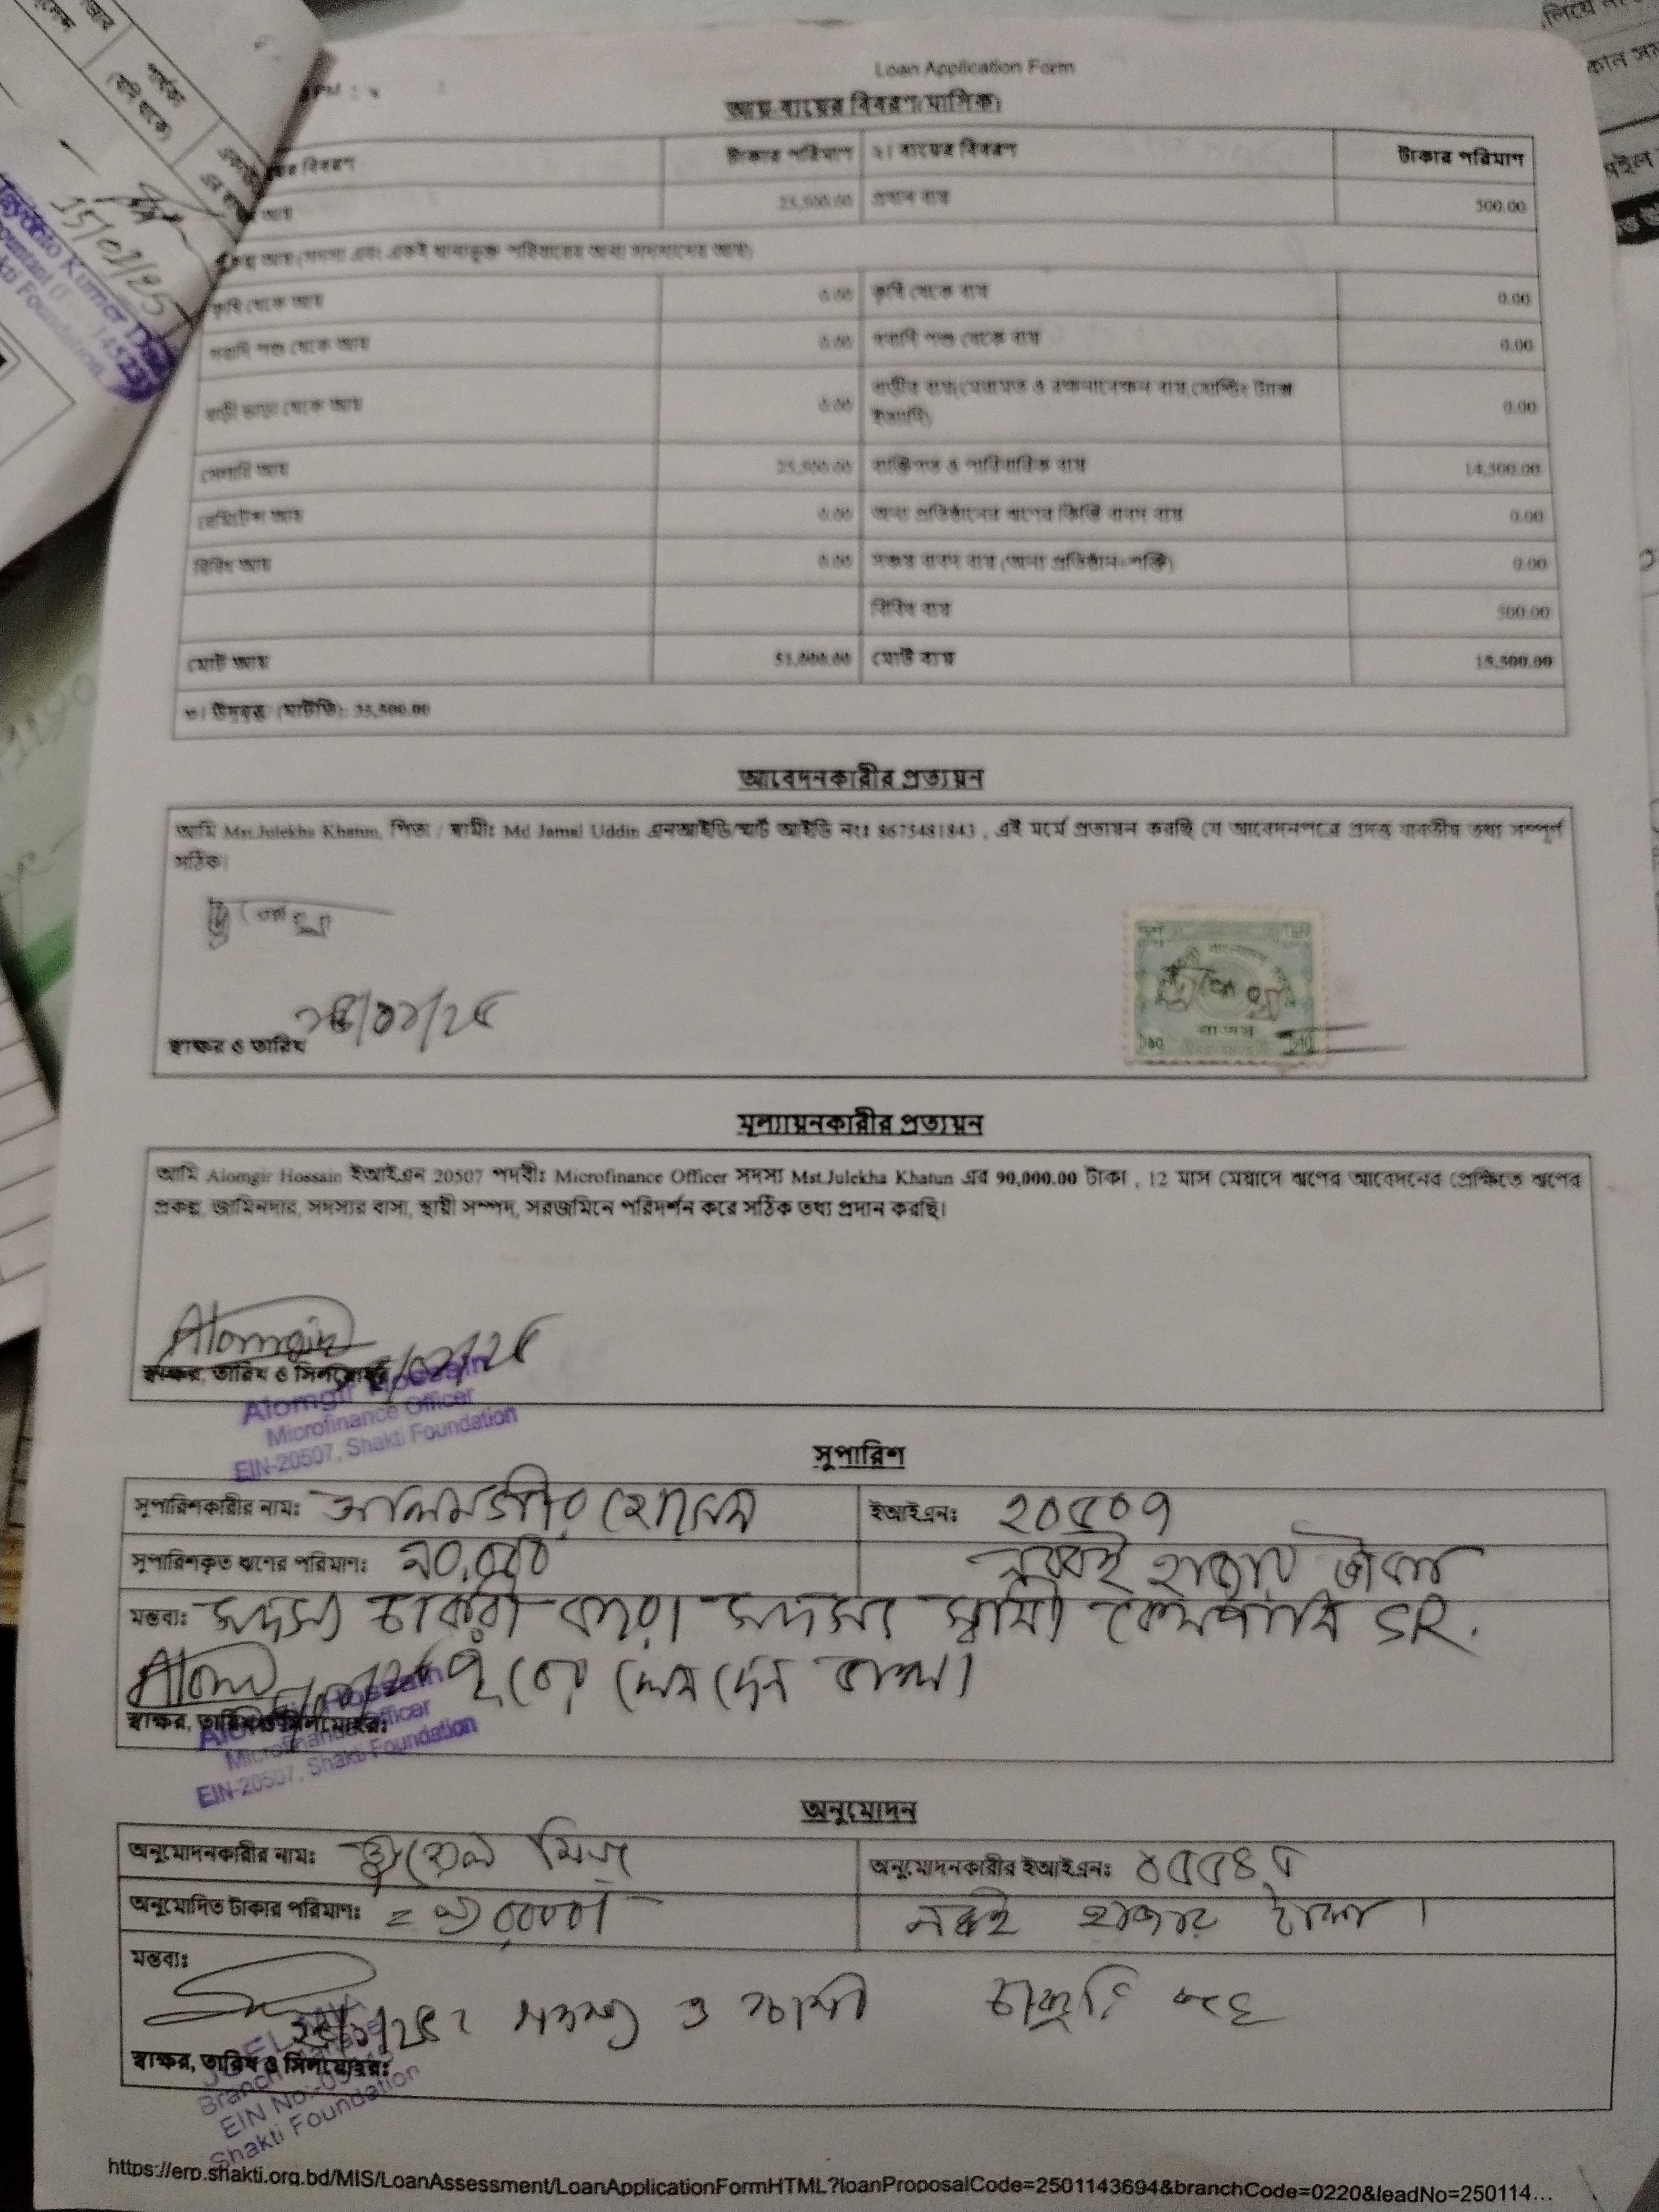 Loan Application Form
আয়-ব্যয়ের বিবরণ(মাসিক)
বিবরণ টাকার পরিমাণ ২। ব্যয়ের বিবরণ টাকার পরিমাণ
আয় 25,500.00 প্রধান ব্যয় 500.00
আয় (সদস্য এবং একই খানাভুক্ত পরিবারের অন্য সদস্যদের আয়)
কৃষি থেকে আয় 0.00 কৃষি থেকে ব্যয় 0.00
গবাদি পশু থেকে আয় 0.00 গবাদি পশু থেকে ব্যয় 0.00
বাড়ী ভাড়া থেকে আয় 0.00 বাড়ীর ব্যয়(মেরামত ও রক্ষনাবেক্ষন ব্যয়,হোল্ডিং ট্যাক্স ইত্যাদি) 0.00
সেলারি আয় 25,500.00 ব্যক্তিগত ও পারিবারিক ব্যয় 14,500.00
রেমিটেন্স আয় 0.00 অন্য প্রতিষ্ঠানের ঋণের কিস্তি বাবদ ব্যয় 0.00
বিবিধ আয় 0.00 সঞ্চয় বাবদ ব্যয় (অন্য প্রতিষ্ঠান+শক্তি) 0.00
বিবিধ ব্যয় 500.00
মোট আয় 51,000.00 মোট ব্যয় 15,500.00
৩। উদ্বৃত্ত/ (ঘাটতি): 35,500.00
আবেদনকারীর প্রত্যয়ন
আমি Mst.Julekha Khatun, পিতা / স্বামীঃ Md Jamal Uddin এনআইডি/স্মার্ট আইডি নংঃ 8675481843 , এই মর্মে প্রত্যয়ন করছি যে আবেদনপত্রে প্রদত্ত যাবতীয় তথ্য সম্পূর্ণ
সঠিক।
জুলেখা
স্বাক্ষর ও তারিখ
মূল্যায়নকারীর প্রত্যয়ন
আমি Alomgir Hossain ইআইএন 20507 পদবীঃ Microfinance Officer সদস্য Mst.Julekha Khatun এর 90,000.00 টাকা , 12 মাস মেয়াদে ঋণের আবেদনের প্রেক্ষিতে ঋণের
প্রকল্প, জামিনদার, সদস্যর বাসা, স্থায়ী সম্পদ, সরজমিনে পরিদর্শন করে সঠিক তথ্য প্রদান করছি।
Alomgir
স্বাক্ষর, তারিখ ও সিলমোহর
Alomgir Hossain
Microfinance Officer
EIN-20507, Shakti Foundation
সুপারিশ
সুপারিশকারীর নামঃ আলমগীর হোসেন ইআইএনঃ ২০৫০৭
সুপারিশকৃত ঋণের পরিমাণঃ ৯০,০০০ নব্বই হাজার টাকা
মন্তব্যঃ সদস্য চাকরী করে। সদস্যর স্বামী কোম্পানি SR.
লেনদেন ভাল।
স্বাক্ষর, তারিখ ও সিলমোহরঃ
Alomgir Hossain
Microfinance Officer
EIN-20507, Shakti Foundation
অনুমোদন
অনুমোদনকারীর নামঃ জুয়েল মিয়া অনুমোদনকারীর ইআইএনঃ
অনুমোদিত টাকার পরিমাণঃ = ৯০,০০০/ নব্বই হাজার টাকা ।
মন্তব্যঃ
সদস্য ও স্বামী চাকুরি করে
স্বাক্ষর, তারিখ ও সিলমোহরঃ
Branch
EIN No:
Shakti Foundation
https://erp.shakti.org.bd/MIS/LoanAssessment/LoanApplicationFormHTML?loanProposalCode=2501143694&branchCode=0220&leadNo=250114...